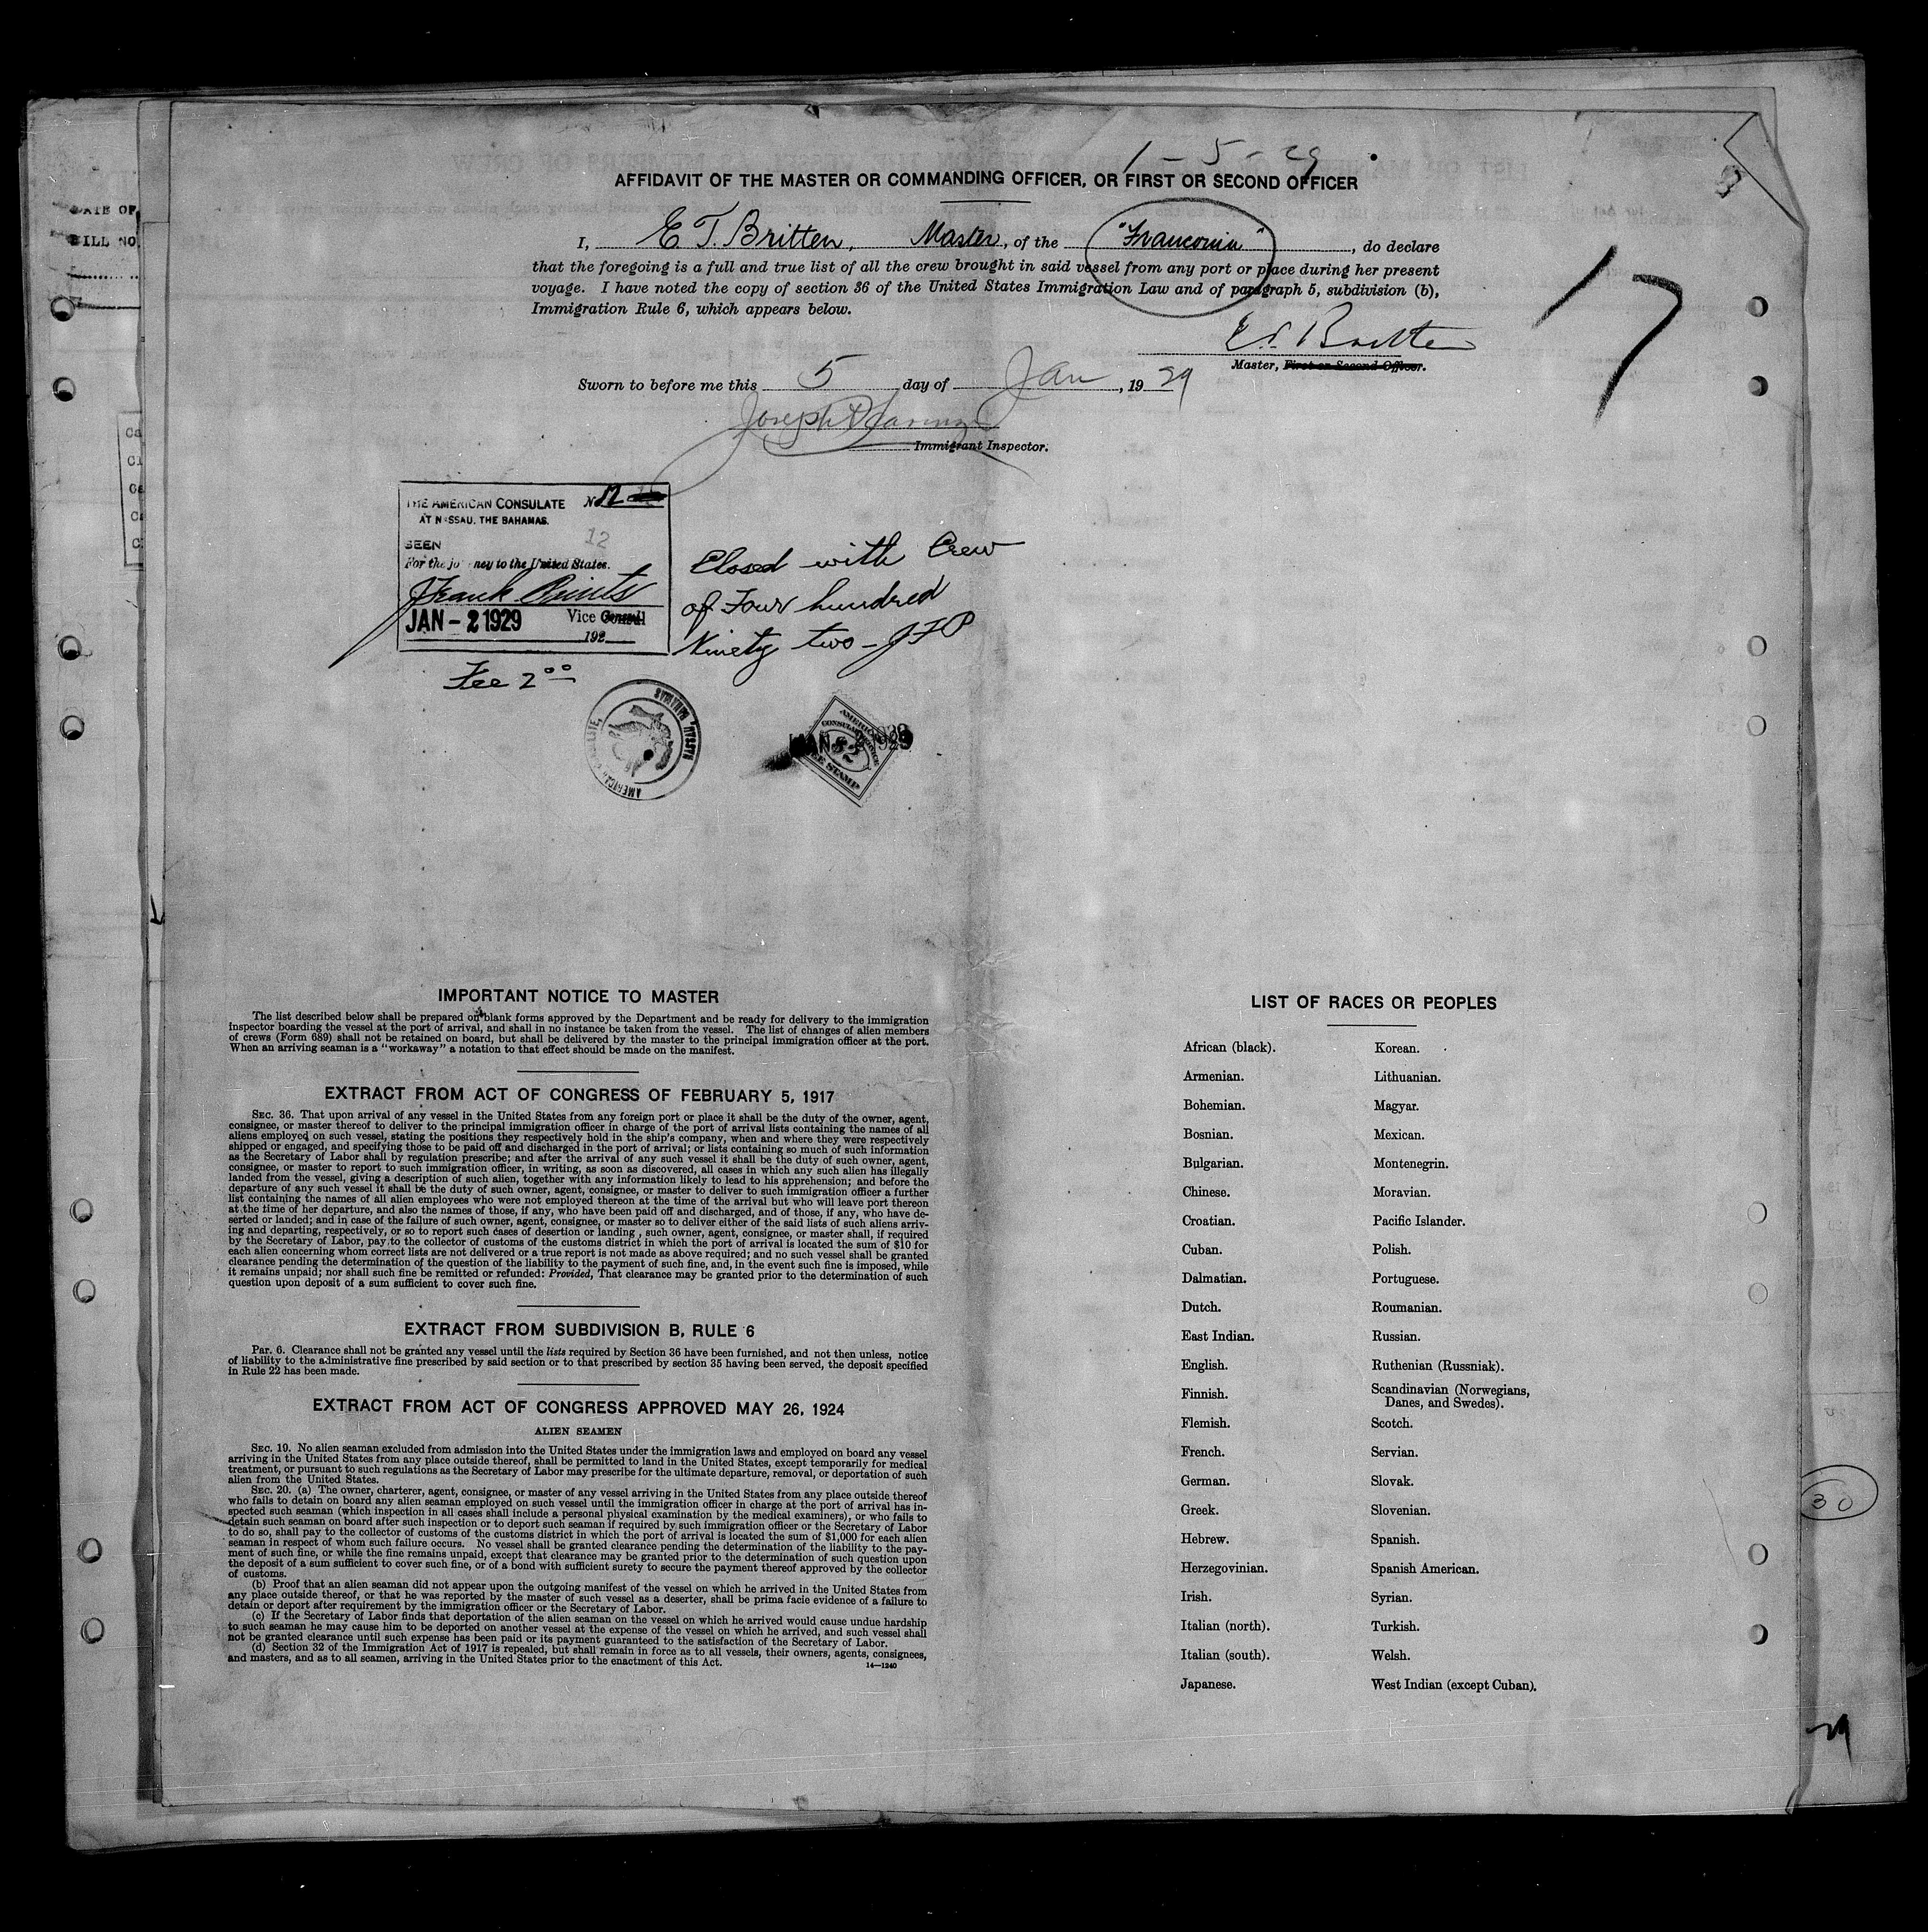 1 - 5 - 29
AFFIDAVIT OF THE MASTER OR COMMANDING OFFICER, OR FIRST OR SECOND OFFICER
I, E T. Britten, Master, of the "Franconia", do declare
that the foregoing is a full and true list of all the crew brought in said vessel from any port or place during her present
voyage. I have noted the copy of section 36 of the United States Immigration Law and of paragraph 5, subdivision (b),
Immigration Rule 6, which appears below.
17
E.T. Britten
Master, First or Second Officer.
Sworn to before me this 5 day of Jan, 19 29
Joseph
Immigrant Inspector.
DATE OF
BILL NO.
THE AMERICAN CONSULATE No 12
AT NASSAU, THE BAHAMAS.
SEEN 12
For the journey to the United States.
JAN - 2 1929 Vice Consul
192
Fee 2 00
Closed with Crew
of Four hundred
Ninety two - JFP
AMERICAN CONSULATE, NASSAU, BAHAMAS
AMERICAN
CONSULAR SERVICE
$2
FEE STAMP
IMPORTANT NOTICE TO MASTER
The list described below shall be prepared on blank forms approved by the Department and be ready for delivery to the immigration
inspector boarding the vessel at the port of arrival, and shall in no instance be taken from the vessel. The list of changes of alien members
of crews (Form 689) shall not be retained on board, but shall be delivered by the master to the principal immigration officer at the port.
When an arriving seaman is a "workaway" a notation to that effect should be made on the manifest.
EXTRACT FROM ACT OF CONGRESS OF FEBRUARY 5, 1917
SEC. 36. That upon arrival of any vessel in the United States from any foreign port or place it shall be the duty of the owner, agent,
consignee, or master thereof to deliver to the principal immigration officer in charge of the port of arrival lists containing the names of all
aliens employed on such vessel, stating the positions they respectively hold in the ship's company, when and where they were respectively
shipped or engaged, and specifying those to be paid off and discharged in the port of arrival; or lists containing so much of such information
as the Secretary of Labor shall by regulation prescribe; and after the arrival of any such vessel it shall be the duty of such owner, agent,
consignee, or master to report to such immigration officer, in writing, as soon as discovered, all cases in which any such alien has illegally
landed from the vessel, giving a description of such alien, together with any information likely to lead to his apprehension; and before the
departure of any such vessel it shall be the duty of such owner, agent, consignee, or master to deliver to such immigration officer a further
list containing the names of all alien employees who were not employed thereon at the time of the arrival but who will leave port thereon
at the time of her departure, and also the names of those, if any, who have been paid off and discharged, and of those, if any, who have de-
serted or landed; and in case of the failure of such owner, agent, consignee, or master so to deliver either of the said lists of such aliens arriv-
ing and departing, respectively, or so to report such cases of desertion or landing , such owner, agent, consignee, or master shall, if required
by the Secretary of Labor, pay to the collector of customs of the customs district in which the port of arrival is located the sum of $10 for
each alien concerning whom correct lists are not delivered or a true report is not made as above required; and no such vessel shall be granted
clearance pending the determination of the question of the liability to the payment of such fine, and, in the event such fine is imposed, while
it remains unpaid; nor shall such fine be remitted or refunded: Provided, That clearance may be granted prior to the determination of such
question upon deposit of a sum sufficient to cover such fine.
EXTRACT FROM SUBDIVISION B, RULE 6
Par. 6. Clearance shall not be granted any vessel until the lists required by Section 36 have been furnished, and not then unless, notice
of liability to the administrative fine prescribed by said section or to that prescribed by section 35 having been served, the deposit specified
in Rule 22 has been made.
EXTRACT FROM ACT OF CONGRESS APPROVED MAY 26, 1924
ALIEN SEAMEN
SEC. 19. No alien seaman excluded from admission into the United States under the immigration laws and employed on board any vessel
arriving in the United States from any place outside thereof, shall be permitted to land in the United States, except temporarily for medical
treatment, or pursuant to such regulations as the Secretary of Labor may prescribe for the ultimate departure, removal, or deportation of such
alien from the United States.
SEC. 20. (a) The owner, charterer, agent, consignee, or master of any vessel arriving in the United States from any place outside thereof
who fails to detain on board any alien seaman employed on such vessel until the immigration officer in charge at the port of arrival has in-
spected such seaman (which inspection in all cases shall include a personal physical examination by the medical examiners), or who fails to
detain such seaman on board after such inspection or to deport such seaman if required by such immigration officer or the Secretary of Labor
to do so, shall pay to the collector of customs of the customs district in which the port of arrival is located the sum of $1,000 for each alien
seaman in respect of whom such failure occurs. No vessel shall be granted clearance pending the determination of the liability to the pay-
ment of such fine, or while the fine remains unpaid, except that clearance may be granted prior to the determination of such question upon
the deposit of a sum sufficient to cover such fine, or of a bond with sufficient surety to secure the payment thereof approved by the collector
of customs.
(b) Proof that an alien seaman did not appear upon the outgoing manifest of the vessel on which he arrived in the United States from
any place outside thereof, or that he was reported by the master of such vessel as a deserter, shall be prima facie evidence of a failure to
detain or deport after requirement by the immigration officer or the Secretary of Labor.
(c) If the Secretary of Labor finds that deportation of the alien seaman on the vessel on which he arrived would cause undue hardship
to such seaman he may cause him to be deported on another vessel at the expense of the vessel on which he arrived, and such vessel shall
not be granted clearance until such expense has been paid or its payment guaranteed to the satisfaction of the Secretary of Labor.
(d) Section 32 of the Immigration Act of 1917 is repealed, but shall remain in force as to all vessels, their owners, agents, consignees,
and masters, and as to all seamen, arriving in the United States prior to the enactment of this Act.
14—1240
LIST OF RACES OR PEOPLES
African (black). Korean.
Armenian. Lithuanian.
Bohemian. Magyar.
Bosnian. Mexican.
Bulgarian. Montenegrin.
Chinese. Moravian.
Croatian. Pacific Islander.
Cuban. Polish.
Dalmatian. Portuguese.
Dutch. Roumanian.
East Indian. Russian.
English. Ruthenian (Russniak).
Finnish. Scandinavian (Norwegians,
Danes, and Swedes).
Flemish. Scotch.
French. Servian.
German. Slovak.
Greek. Slovenian.
Hebrew. Spanish.
Herzegovinian. Spanish American.
Irish. Syrian.
Italian (north). Turkish.
Italian (south). Welsh.
Japanese. West Indian (except Cuban).
30